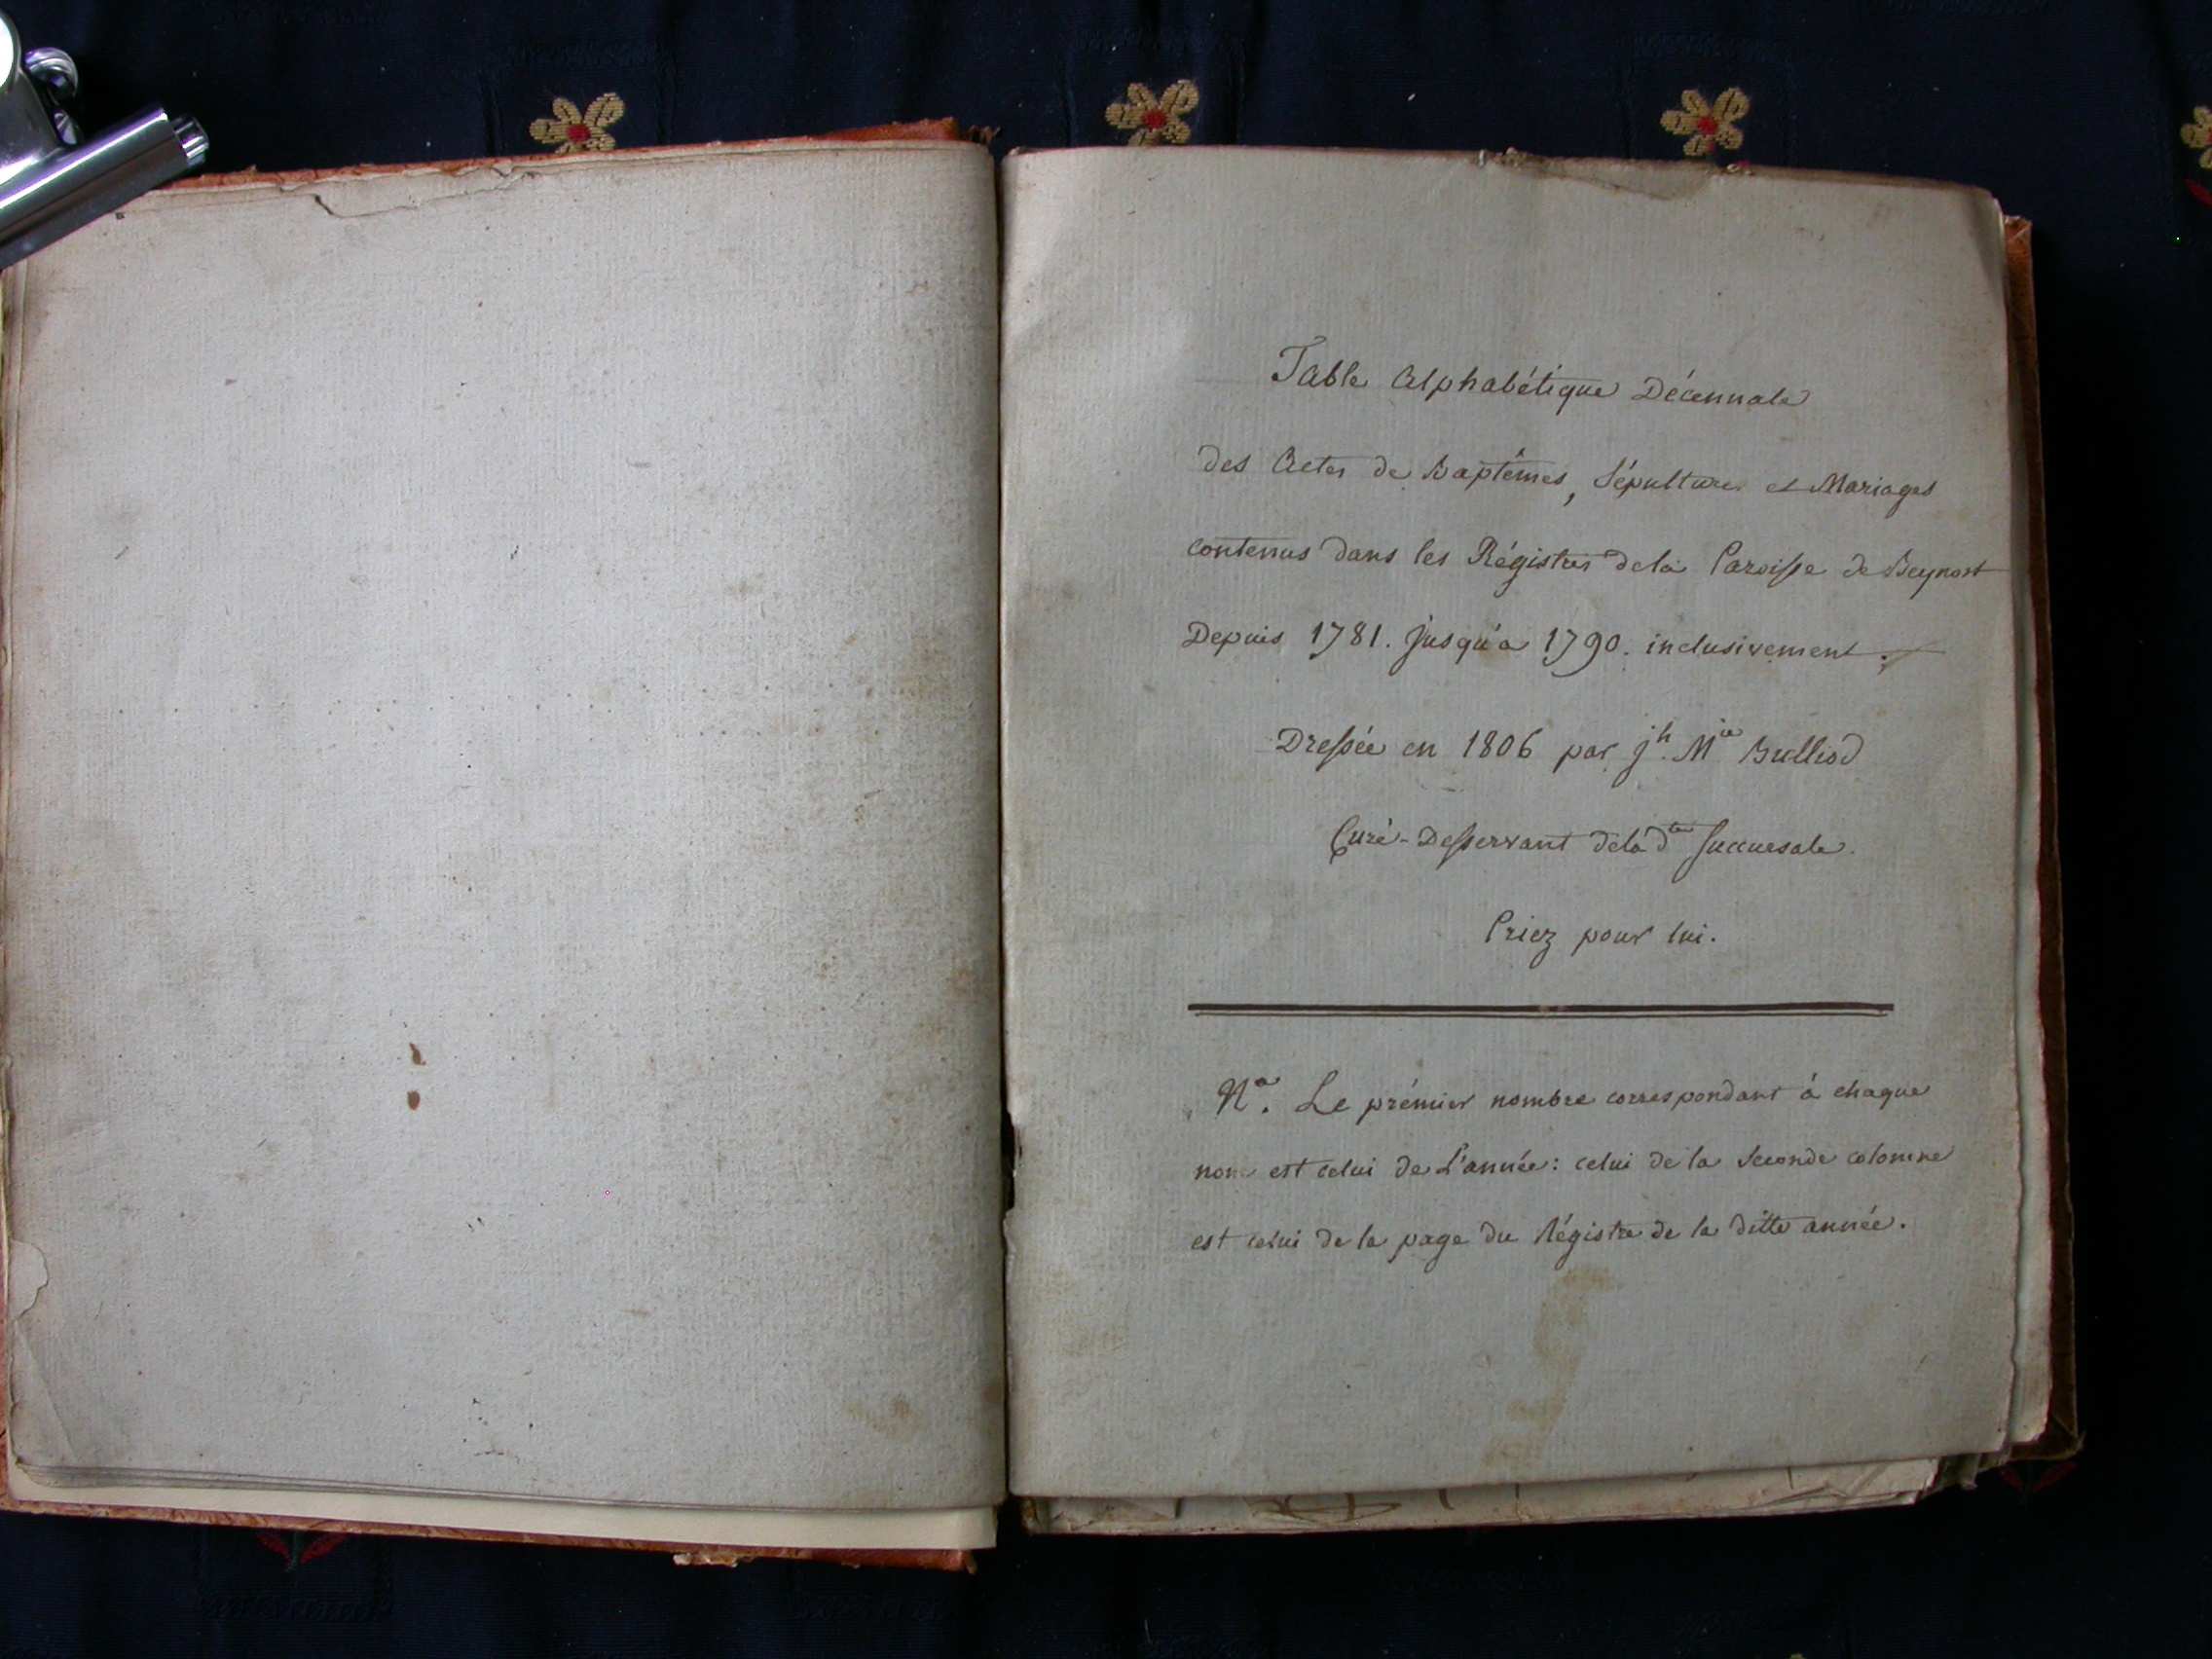 Table Alphabétique Décennale
des Actes de Baptêmes, Sépultures et Mariages
contenus dans les Régistres de la Paroisse de Beynost
Depuis 1781. jusqu'a 1790. inclusivement.
Dressée en 1806 par jh. Mie Bulliod
Curé-Desservant de la dte Succursale.
Priez pour lui.
Na. Le prémier nombre correspondant à chaque
nom est celui de L'année: celui de la Seconde colomne
est celui de la page du Régistre de la ditte année.